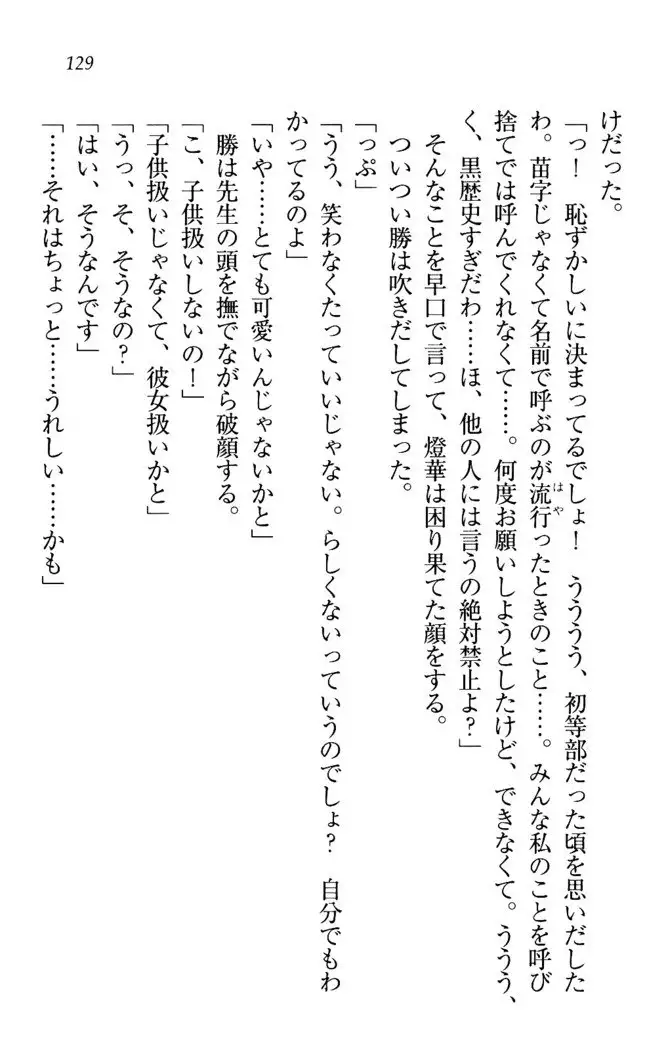 129
けだった。
「っ！　恥ずかしいに決まってるでしょ！　うううう、初等部だった頃を思いだした
わ。苗字じゃなくて名前で呼ぶのが流行ったときのこと……。みんな私のことを呼び
はや
捨てでは呼んでくれなくて……。何度お願いしようとしたけど、できなくて。ううう、
く、黒歴史すぎだわ……ほ、他の人には言うの絶対禁止よ？」
そんなことを早口で言って、燈華は困り果てた顔をする。
ついつい勝は吹きだしてしまった。
「っぷ」
「うう、笑わなくたっていいじゃない。らしくないっていうのでしょ？　自分でもわ
かってるのよ」
「いや……とても可愛いんじゃないかと」
勝は先生の頭を撫でながら破顔する。
「こ、子供扱いしないの！」
「子供扱いじゃなくて、彼女扱いかと」
「うっ、そ、そうなの？」
「はい、そうなんです」
「……それはちょっと……うれしい……かも」